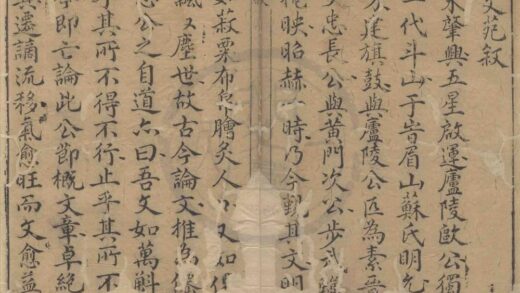 文苑叙
宋肇興五星啟運廬陵歐公獨
代斗山于旹眉山蘇氏明允
旗鼓與廬陵公匹為素
文忠長公與黃門次公步武
映昭赫一時乃今 其文明
如菽粟布帛膾炙人口又如
塵世故古今論文推為
忠公之自道亦曰吾文如萬斛
乎其所不得不行止乎其所不
即亡論此公節概文章卓絕
遷謫流移氣愈旺而文愈益